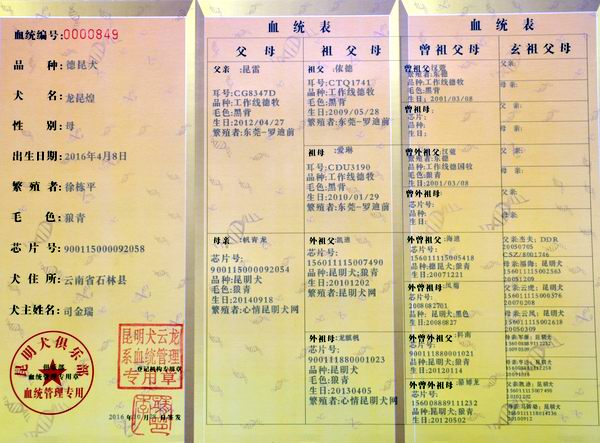 血统编号:0000849
品 种:德昆犬
犬 名:龙昆煌
性 别:母
出生日期:2016年4月8日
繁 殖 者:徐栋平
毛 色:狼青
芯 片 号:900115000092058
犬 住 所:云南省石林县
犬主姓名:司金瑞
昆明犬俱乐部
血统管理专用
昆明犬云龙
系血统管理
专用章
登记机构专用章
血统表
父母
祖父母
父亲 :昆雷
耳号:CG8347D
品种:工作线德牧
毛色:黑背
生日:2012/04/27
繁殖者:东莞-罗迪前
祖父 :依德
耳号:CTQ1741
品种:工作线德牧
毛色:黑背
生日:2009/05/28
繁殖者:东莞-罗迪前
祖母 :爱琳
耳号:CDU3190
品种:工作线德牧
毛色:黑背
生日:2010/01/29
繁殖者:东莞-罗迪前
母亲 :帆青龙
芯片号:
900115000092054
品种:昆明犬
毛色:狼青
生日:20140918
繁殖者:心情昆明犬网
外祖父:凯迪
芯片号:
156011115007490
品种:昆明犬;狼青
生日:20101202
繁殖者:心情昆明犬网
外祖母:龙麒帆
芯片号:
900111880001023
品种:昆明犬;狼青
生日:20130405
繁殖者:心情昆明犬网
血统表
曾祖父母
玄祖父母
曾祖父:汉菠
繁殖者:东德
品种:工作线德牧
毛色:黑背
生日:2001/03/08
曾祖母:
芯片:
品种:
生日:
曾外祖父:汉菠
繁殖者:东德
品种:工作线德国牧
毛色:黑背
生日:2001/03/08
曾外祖母:
芯片号:
品种:
生日:
外曾祖父:海迪
芯片号:
156011115005418
品种:德昆犬;狼青
生日:20071221
外曾祖母:凤菊
芯片号:
2008082701
品种:昆明犬,黑色
生日:20080827
外曾外祖父:科南
芯片号:
900111880001021
品种:昆明犬;狼青
生日:20120114
外曾外祖母:
芯片号:
156008889111232
品种:昆明犬;狼青
生日:20120502
父亲:
母亲:
父亲:
母亲:
父亲:
母亲:
父亲:
母亲:
父亲:杰夫; DDR
20050705
CSZ/8001746
母亲:福梅; 昆明犬
156011115002563
20051209
父亲:云虎; 昆明犬
156011115000376
母亲:云凤; 昆明犬
156011115002618